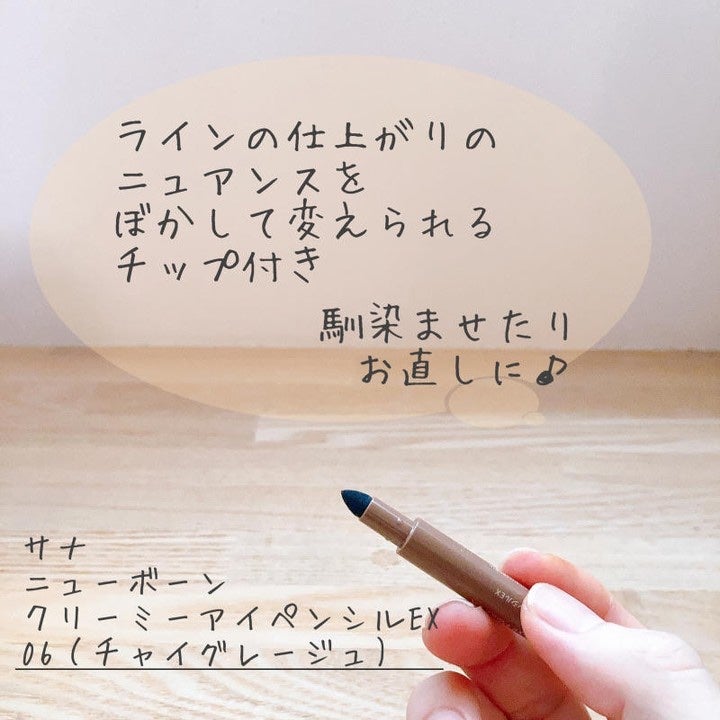 ラインの仕上がりの
ニュアンスを
ぼかして変えられる
チップ付き
馴染ませたり
お直しに♪
サナ
ニューボーン
クリーミーアイペンシルEX
06(チャイグレージュ)